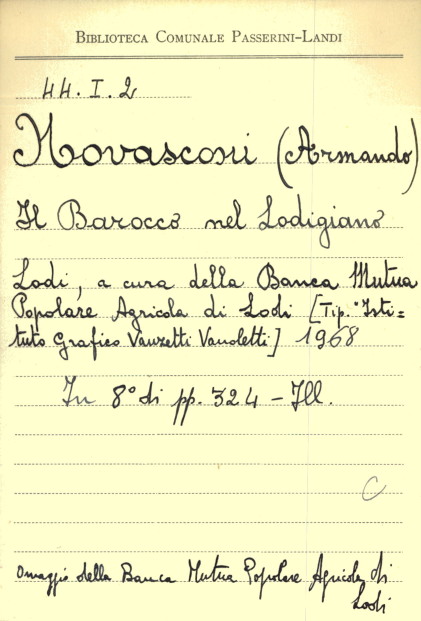 BIBLIOTECA COMUNALE PASSERINI-LANDI
44. I. 2
Novasconi (Armando)
Il Barocco nel Lodigiano
Lodi, a cura della Banca Mutua
Popolare Agricola di Lodi [Tip. "Isti=
tuto Grafico Vanzetti Vanoletti] 1968
In 8° di pp. 324 - Ill.
C
Omaggio della Banca Mutua Popolare Agricola di
Lodi